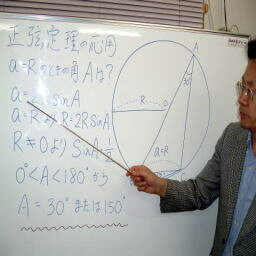 正弦定理の応用
a=Rのときの角Aは?
a=2RsinA
a=RよりR=2RsinA
R≠0よりsinA=1/2
0°<A<180°から
A=30°または150°
A
30°
R
O
a=R
C